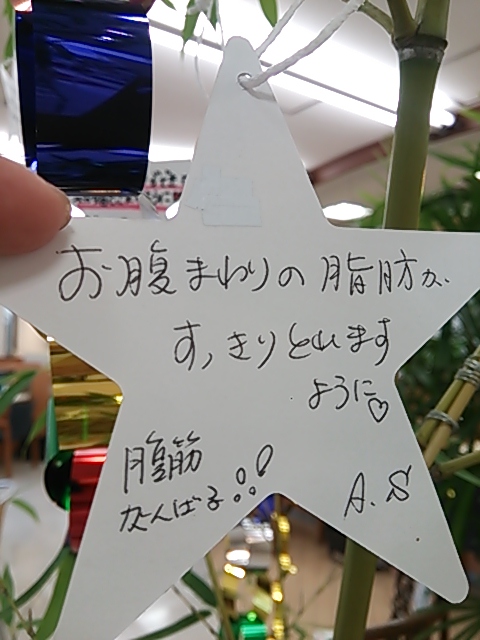 お腹まわりの脂肪が
すっきりとれます
ように♡
腹筋
がんばる!!
A.S